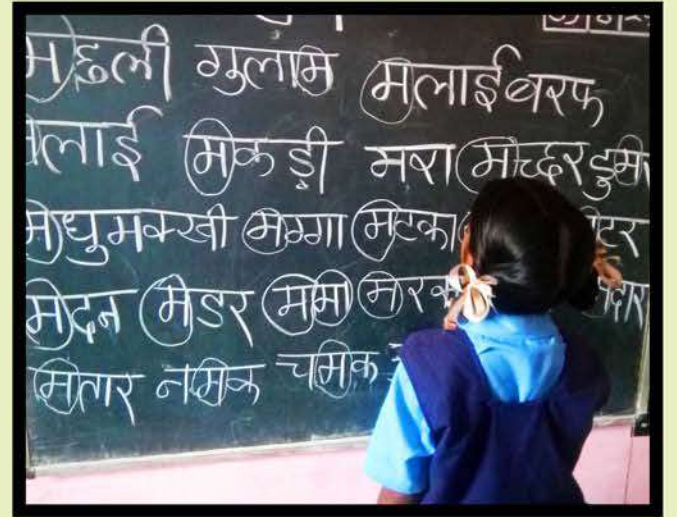 मछली गुलाम मलाईबरफ
मलाई मकड़ी मषा मच्छर डुमर
मधुमक्खी मग्गा मटका
मदन मडर ममा
मतार नमक चमक